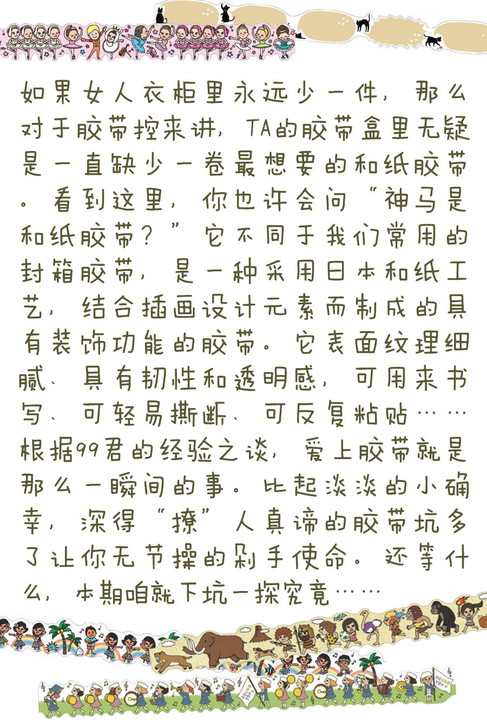 如果女人衣柜里永远少一件，那么
对于胶带控来讲，TA的胶带盒里无疑
是一直缺少一卷最想要的和纸胶带
。看到这里，你也许会问“神马是
和纸胶带？”它不同于我们常用的
封箱胶带，是一种采用日本和纸工
艺，结合插画设计元素而制成的具
有装饰功能的胶带。它表面纹理细
腻、具有韧性和透明感，可用来书
写、可轻易撕断、可反复粘贴……
根据99君的经验之谈，爱上胶带就是
那么一瞬间的事。比起淡淡的小确
幸，深得“撩”人真谛的胶带坑多
了让你无节操的剁手使命。还等什
么，本期咱就下坑一探究竟……